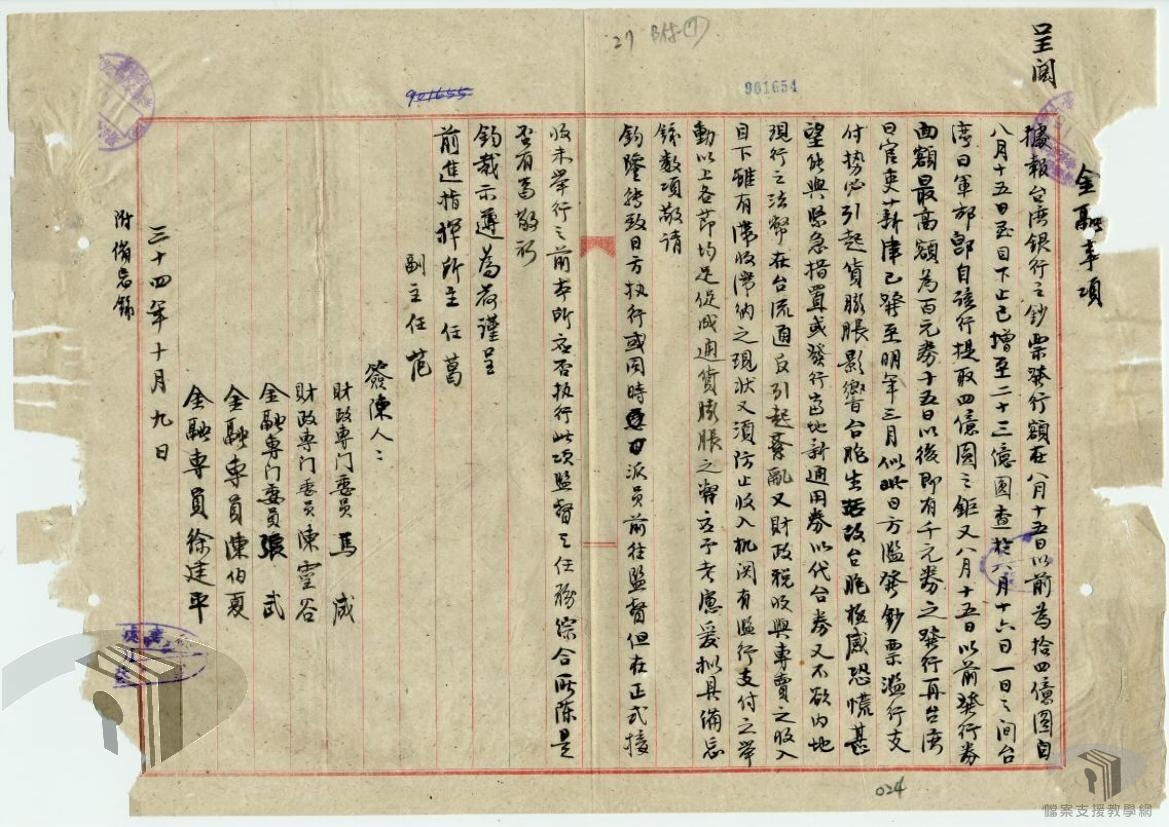 27 附(7)
901654
901655
呈閱
金融事項
據報台湾銀行之鈔票發行額在八月十五日以前為拾四億圓自
八月十五日至目下止已增至二十三億圓查於八月十六日一日之间台
湾日軍部即自該行提取四億圓之鉅又八月十五日以前發行券
面額最高額為百元券十五日以後即有千元券之發行再台湾
日官吏薪津已發至明年三月似此日方濫發鈔票濫行支
付势必引起貨膨脹影響台胞生活故台胞極感恐慌甚
望能與緊急措置或發行當地新通用券以代台券又不欲内地
現行之法幣在台流通反引起紊亂又財政税收與專賣之收入
目下雖有滯收滯納之現狀又須防止收入机関有濫行支付之舉
動以上各節均足促成通貨膨脹之弊应予考慮爰拟具備忘
錄数項敬请
鈞鑒轉致日方执行或同時派员前往監督但在正式接
收未举行之前本所应否执行此項監督之任務綜合所陳是
否有當敬祈
鈞裁示遵為荷谨呈
前進指揮所主任葛
副主任范
簽陳人：
財政專门委員 馬咸
財政專门委員 陳靈谷
金融專门委員 張武
金融專員 陳伯夏
金融專員 徐建平
三十四年十月九日
附備忘錄
024
檔案支援教學網